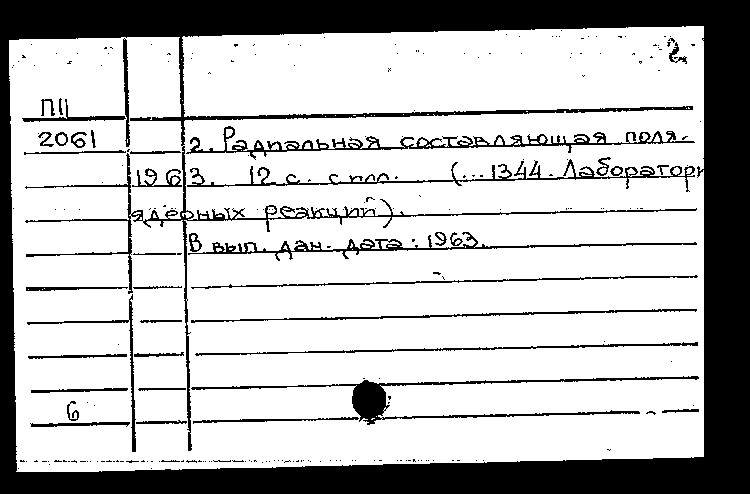 2.
П11
2061 2. Радиальная составляющая поля.
1963. 12 с. с илл. (...1344. Лаборатори
ядерных реакций).
В вып. дан. дата: 1963.
6